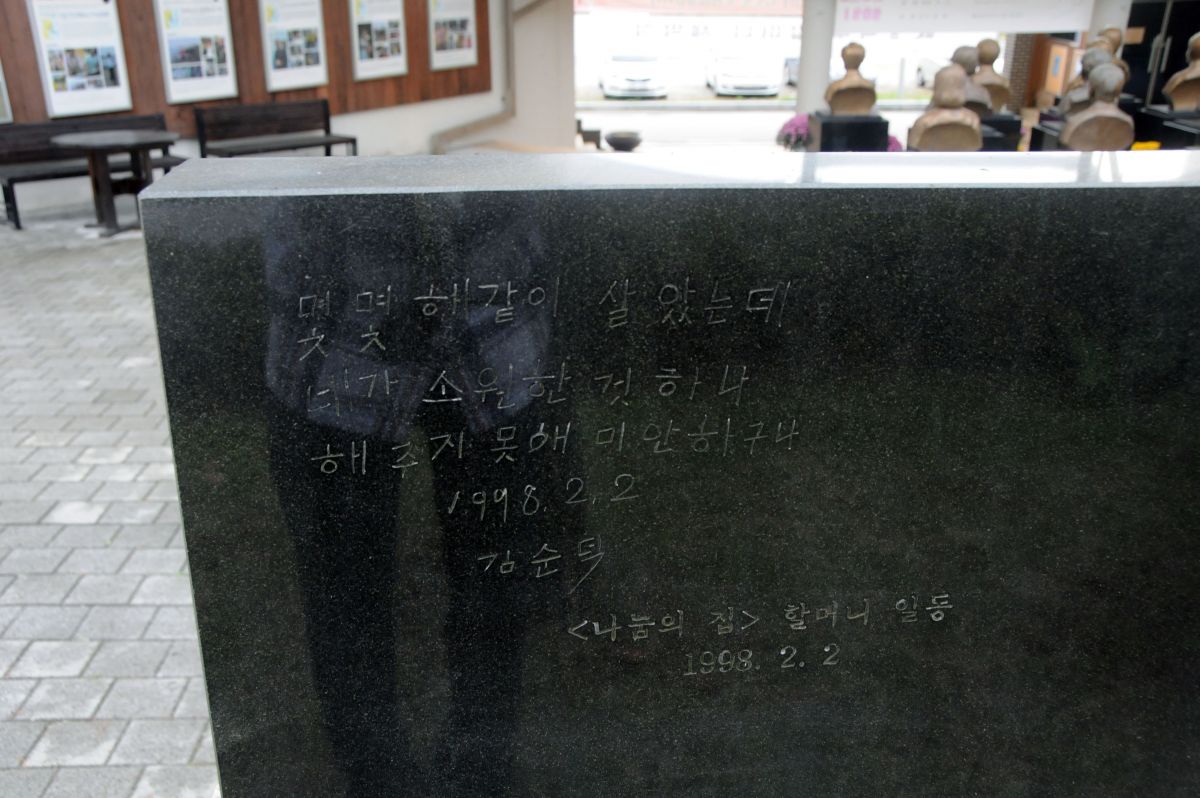 몇 몇 해같이 살았는데
네가 소원한 것 하나
해 주지 못해 미안하구나
1998. 2. 2
김순덕
<나눔의 집> 할머니 일동
1998. 2. 2